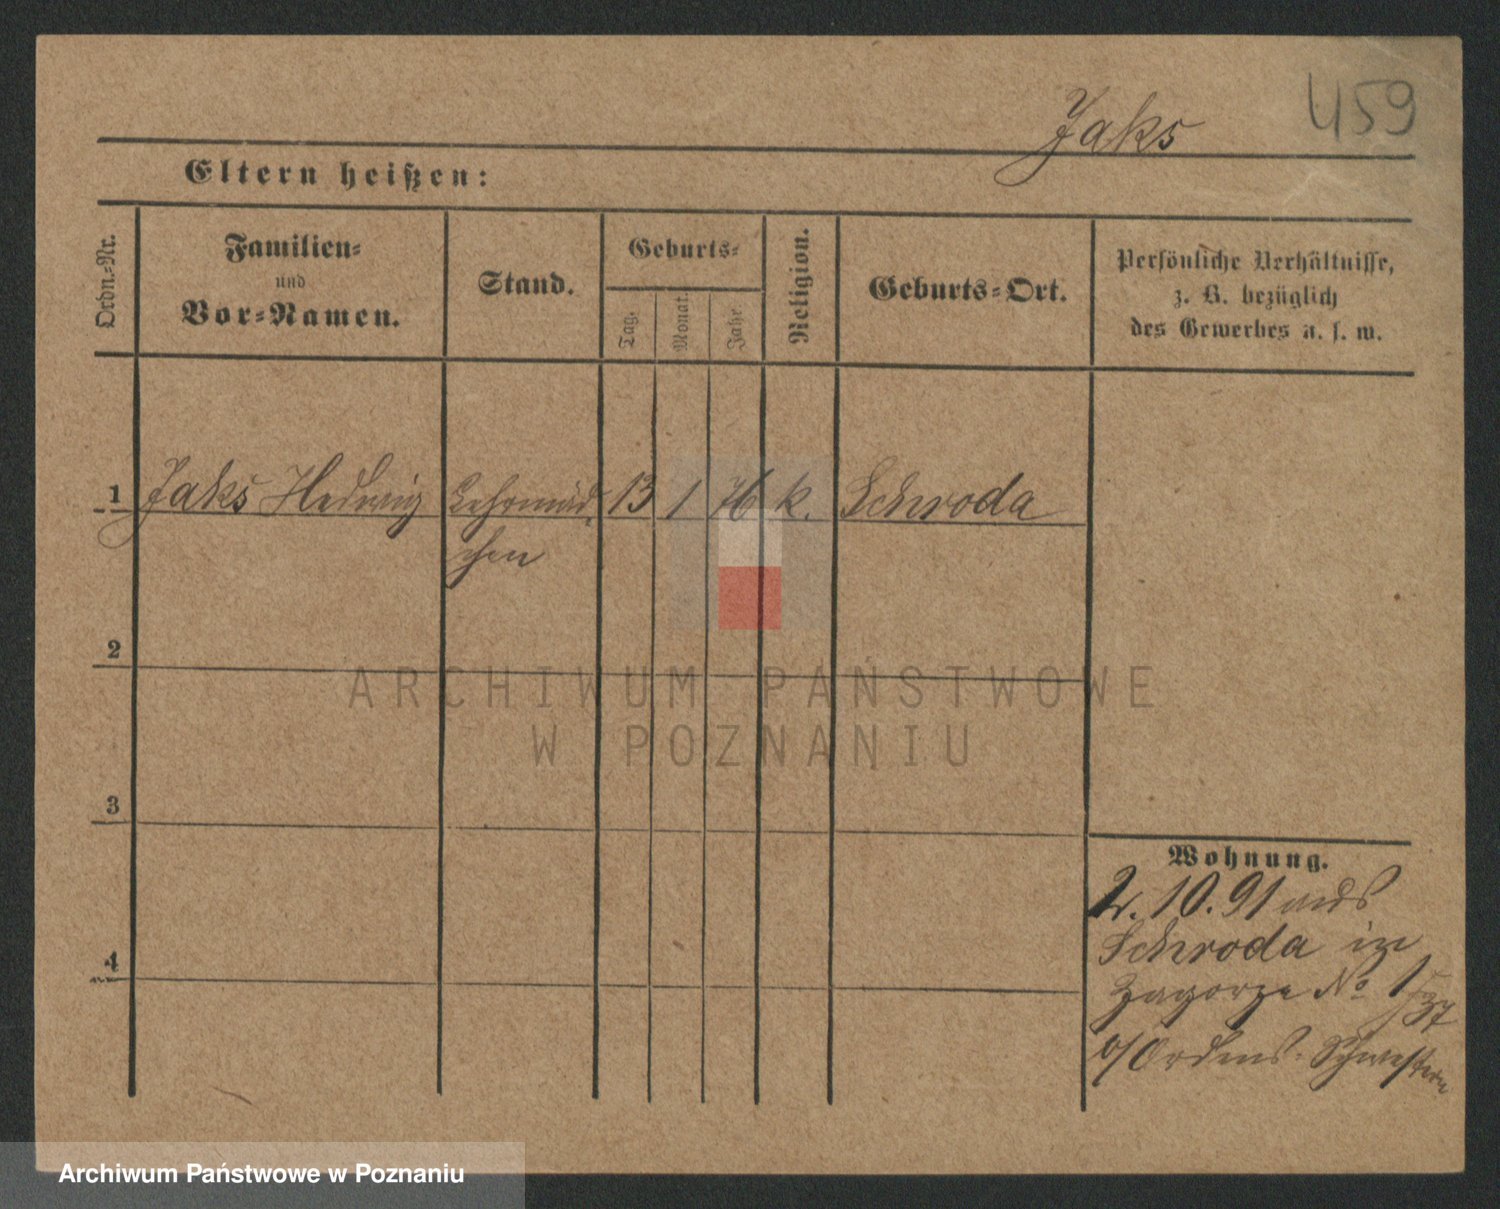 459
Jaks
Eltern heißen:
Ordn.-Nr.
Familien-
und
Vor-Namen.
Stand.
Geburts-
Tag.
Monat.
Jahr.
Religion.
Geburts-Ort.
Persönliche Verhältnisse,
z. B. bezüglich
des Gewerbes u. s. w.
1 Jaks Hedwig Lehrmäd- 13 1 76 k. Schroda
chen
2
3
4
Wohnung.
2. 10. 91 aus
Schroda in
Zagorze No 1
b/Ordens-Schwestern
ARCHIWUM PAŃSTWOWE
W POZNANIU
Archiwum Państwowe w Poznaniu